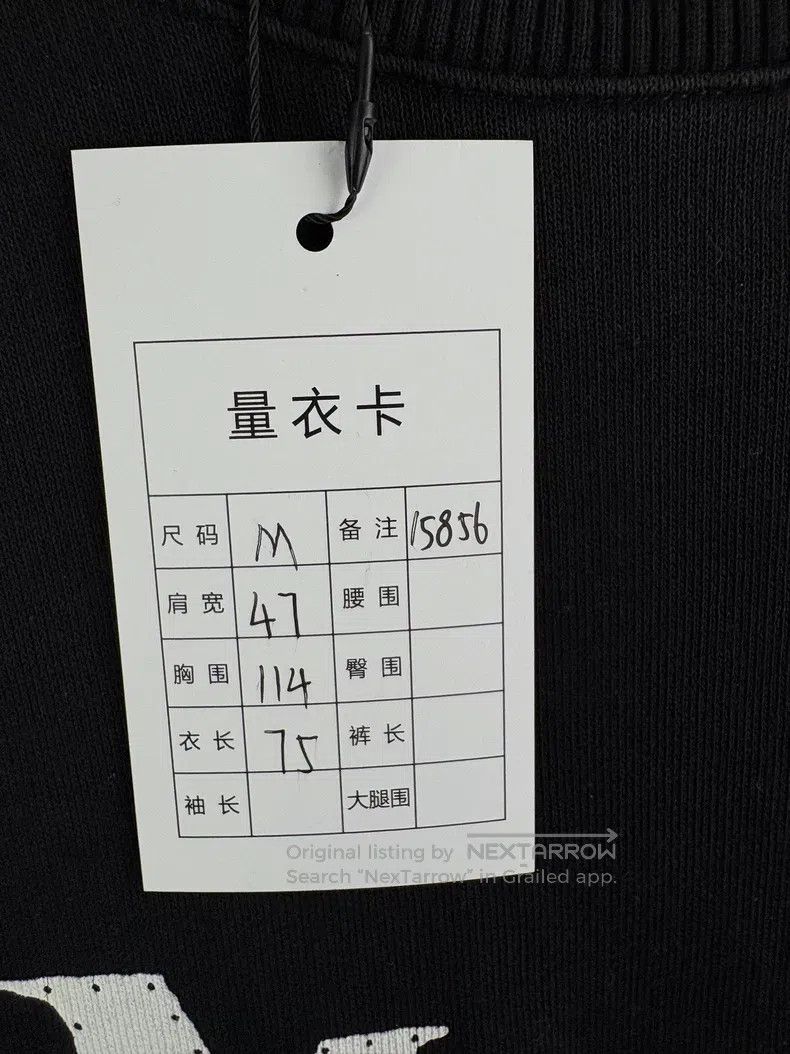 量衣卡
尺码 M 备注 15856
肩宽 47 腰围
胸围 114 臀围
衣长 75 裤长
袖长 大腿围
Original listing by NEXTARROW
Search “NexTarrow” in Grailed app.